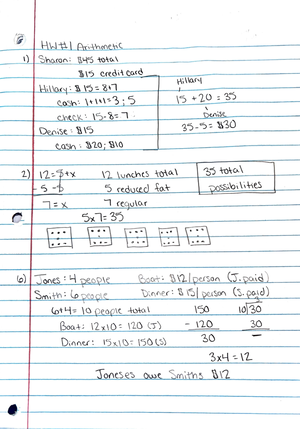 HW#1 Arithmetic
1) Sharon: $45 total
$15 credit card
Hillary: $15 = 8+7
cash: 1+1+1=3; 5
check: 15-8=7
Denise: $15
cash: $20; $10
Hillary
15 + 20 = 35
Denise
35-5=$30
2) 12=5+x
-5 -5
7=x
12 lunches total
5 reduced fat
7 regular
35 total
possibilities
5x7=35
6) Jones: 4 people Boat: $12/person (J. paid)
Smith: 6 people Dinner: $15/person (S. paid)
6+4=10 people total
Boat: 12x10=120 (J)
Dinner: 15x10=150 (S)
150
- 120
30
3
10)30
30
3x4=12
Joneses owe Smiths $12